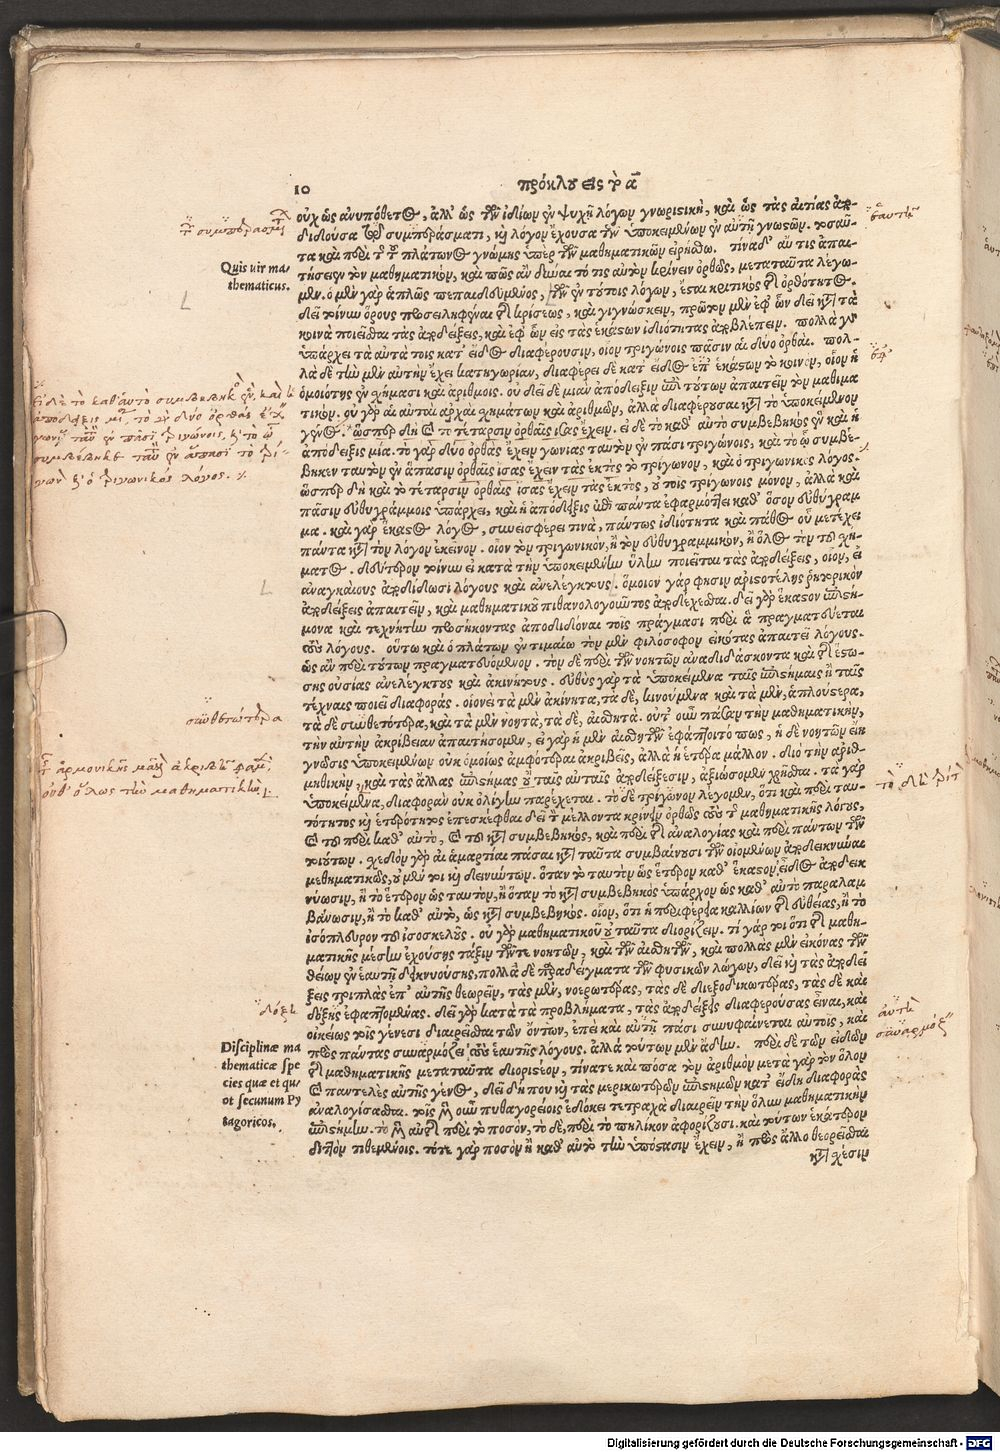 10 πρόκλου εἰς τὸ αʹ
οὐχ ὡς ἀνυπόθετος, ἀλλ' ὡς τῶν ἰδίων ἐν ψυχῇ λόγων γνωριστικὴ, καὶ ὡς τὰς αἰτίας ἀπο-
διδοῦσα τοῦ συμπεράσματι, καὶ λόγον ἔχουσα τῶν ὑποκειμένων ἐν αὐτῇ γνωστῶν. τοσαῦ-
τα καὶ περὶ τῆς τοῦ πλάτωνος γνώμης ὑπὲρ τῶν μαθηματικῶν εἰρήσθω. τίνα δ' ἄν τις ἀπαι-
Quis uir ma-
thematicus.
τήσειεν τὸν μαθηματικὸν, καὶ πῶς ἂν δύναιτό τις αὐτὸν κρίνειν ὀρθῶς, μεταταῦτα λέγω-
μεν. ὁ μὲν γὰρ ἁπλῶς πεπαιδευμένος, τῶν ἐν τούτοις λόγων, ἔσται κριτικὸς τῆς ὀρθότητος.
δεῖ τοίνυν ὅρους προσειληφέναι τῆς κρίσεως, καὶ γιγνώσκειν, πρῶτον μὲν ἐφ' ὧν δεῖ κατὰ τὰ
κοινὰ ποιεῖσθαι τὰς ἀποδείξεις, καὶ ἐφ' ὧν εἰς τὰς ἑκάστων ἰδιότητας ἀποβλέπειν. πολλὰ γὰρ
ὑπάρχει τὰ αὐτὰ τοῖς κατ' εἶδος διαφέρουσιν, οἷον τριγώνοις πᾶσιν αἱ δύο ὀρθαί. πολ-
λὰ δὲ τὴν μὲν αὐτὴν ἔχει κατηγορίαν, διαφέρει δὲ κατ' εἶδος ἐπ' ἑκάστων τὸ κοινὸν, οἷον ἡ
ὁμοιότης ἐν σχήμασι καὶ ἀριθμοῖς. οὐ δεῖ δὲ μίαν ἀπόδειξιν ἐπὶ τούτων ἀπαιτεῖν τὸν μαθημα
τικόν. οὐ γὰρ αἱ αὐταὶ ἀρχαὶ σχημάτων καὶ ἀριθμῶν, ἀλλὰ διαφέρουσαι κατὰ τὸ ὑποκείμενον
γένος. ὥσπερ δὴ καὶ τὸ τέταρσιν ὀρθαῖς ἴσας ἔχειν. εἰ δὲ τὸ καθ' αὑτὸ συμβεβηκὸς ἓν καὶ ἡ
ἀπόδειξις μία. τὸ γὰρ δύο ὀρθὰς ἔχειν γωνίας ταυτὸν ἐν πάσι τριγώνοις. καὶ τὸ ᾧ συμβε-
βηκεν ταυτὸν ἐν ἅπασιν ὀρθαῖς ἴσας ἔχειν τὰς ἐκτὸς τὸ τρίγωνον, καὶ ὁ τριγωνικὸς λόγος.
ὥσπερ δὴ καὶ τὸ τέταρσιν ὀρθαῖς ἴσας ἔχειν τὰς ἐκτὸς, οὐ τοῖς τριγώνοις μόνον, ἀλλὰ καὶ
πάσιν εὐθυγράμμοις ὑπάρχει, καὶ ἡ ἀπόδειξις ἐπὶ πάντα ἐφαρμόττει καθ' ὅσον εὐθύγραμ
μα. καὶ γὰρ ἕκαστος λόγος, συνεισφέρει τινὰ, πάντως ἰδιότητα καὶ πάθος οὗ μετέχει
πάντα κατὰ τὸν λόγον ἐκεῖνον. οἷον τὸν τριγωνικὸν, ἢ τὸν εὐθυγραμμικὸν, ἢ ὅλως τὸν τοῦ σχή-
ματος. δεύτερον τοίνυν εἰ κατὰ τὴν ὑποκειμένην ὕλην ποιεῖται τὰς ἀποδείξεις, οἷον, εἰ
ἀναγκαίους ἀποδίδωσι λόγους καὶ ἀνελέγκτους. ὅμοιον γάρ φησιν ἀριστοτέλης ῥητορικὸν
ἀποδείξεις ἀπαιτεῖν, καὶ μαθηματικοῦ πιθανολογοῦντος ἀποδέχεσθαι. δεῖ γὰρ ἕκαστον ἐπιστή-
μονα καὶ τεχνίτην προσήκοντας ἀποδιδόναι τοῖς πράγμασι περὶ ἃ πραγματεύεται
τοὺς λόγους. οὕτω καὶ ὁ πλάτων ἐν τιμαίῳ τὸν μὲν φιλόσοφον εἰκότας ἀπαιτεῖ λόγους.
ὡς ἂν περὶ τούτων πραγματευόμενον. τὸν δὲ περὶ τῶν νοητῶν ἀναδιδάσκοντα καὶ τῆς ἑστώ-
σης οὐσίας ἀνελέγκτους καὶ ἀκινήτους. εὐθὺς γὰρ τὰ ὑποκείμενα ταῖς ἐπιστήμαις ἢ ταῖς
τέχναις ποιεῖ διαφοράς. οἷον εἰ τὰ μὲν ἀκίνητα, τὰ δὲ, κινούμενα καὶ τὰ μὲν, ἁπλούστερα,
τὰ δὲ συνθετότερα, καὶ τὰ μὲν νοητὰ, τὰ δὲ, αἰσθητά. οὔτ' οὖν πᾶσαν τὴν μαθηματικὴν,
τὴν αὐτὴν ἀκρίβειαν ἀπαιτήσομεν, εἰ γὰρ ἡ μὲν αἰσθητῶν ἐφάπτοιτο πως, ἡ δὲ νοητῶν εἴη
γνῶσις ὑποκειμένων οὐκ ὁμοίως ἀμφότεραι ἀκριβεῖς, ἀλλὰ ἡ ἑτέρα μάλλον. διὸ τὴν ἀριθ-
μητικὴν, καὶ τὰς ἄλλας ἐπιστήμας οὐ ταῖς αὐταῖς ἀποδείξεσιν, ἀξιώσομεν χρῆσθαι. τὰ γὰρ
ὑποκείμενα, διαφορὰν οὐκ ὀλίγην παρέχεται. τὸ δὲ τρίγωνον λέγομεν, ὅτι καὶ περὶ ταυ-
τότητος καὶ ἑτερότητος ἐπεσκέφθαι δεῖ τὸν μέλλοντα κρίνειν ὀρθῶς τοὺς τοῦ μαθηματικῆς λόγους,
καὶ τοῦ περὶ καθ' αὑτὸ, καὶ τοῦ κατὰ συμβεβηκὸς, καὶ περὶ τῆς ἀναλογίας καὶ περὶ πάντων τῶν
τοιούτων. σχεδὸν γὰρ αἱ ἁμαρτίαι πάσαι κατὰ ταῦτα συμβαίνουσι τῶν οἰομένων ἀποδεικνύναι
μεθηματικῶς, οὐ μέν τοι καὶ δεικνύντων. ὅταν τὸ ταυτὸν ὡς ἕτερον καθ' ἕκαστον εἶδος ἀποδεικ
νύωσιν, ἢ τὸ ἕτερον ὡς ταυτὸν, ἢ ὅταν τὸ κατὰ συμβεβηκὸς ὑπάρχον ὡς καθ' αὑτὸ παραλαμ
βάνωσιν, ἢ τὸ καθ' αὑτὸ, ὡς κατὰ συμβεβηκός. οἷον, ὅτι ἡ περιφέρεια καλλίων τῆς εὐθείας, ἢ τὸ
ἰσόπλευρον τοῦ ἰσοσκελοῦς. οὐ γὰρ μαθηματικοῦ ταῦτα διορίζειν. τί γάρ τοι ὅτι τῆς μαθη-
ματικῆς μέσην ἐχούσης τάξιν τῶν τε νοητῶν, καὶ τῶν αἰσθητῶν, καὶ πολλὰς μὲν εἰκόνας τῶν
θείων ἐν ἑαυτῇ δεικνυούσης, πολλὰ δὲ παραδείγματα τῶν φυσικῶν λόγων, δεῖ καὶ τὰς ἀποδεί
ξεις τριπλὰς ἐπ' αὐτῆς θεωρεῖν, τὰς μὲν, νοερωτέρας, τὰς δὲ διεξοδικωτέρας, τὰς δὲ καὶ
δόξης ἐφαπτομένας. δεῖ γὰρ κατὰ τὰ προβλήματα, τὰς ἀποδείξεις διαφερούσας εἶναι, καὶ
οἰκείως τοῖς γένεσι διαιρεῖσθαι τῶν ὄντων, ἐπεὶ καὶ αὐτὴ πάσι συνυφαίνεται αὐτοῖς, καὶ
πρὸς πάντας συναρμόζει τοὺς ἑαυτῆς λόγους. ἀλλὰ τούτων μὲν ἅδην. περὶ δὲ τῶν εἰδῶν
Disciplinæ ma
thematicæ spe
cies quæ et qu
ot secunum Py
tagoricos.
τῆς μαθηματικῆς μεταταῦτα διοριστέον, τίνα τε καὶ πόσα τὸν ἀριθμὸν μετὰ γὰρ τὸν ὅλον
καὶ παντελὲς αὐτῆς γένος, δεῖ δή που καὶ τὰς μερικωτέρων ἐπιστημῶν κατ' εἴδη διαφορὰς
ἀναλογίσασθαι. τοῖς μὲν οὖν πυθαγορείοις ἐδόκει τετραχὰ διαιρεῖν τὴν ὅλην μαθηματικὴν
ἐπιστήμην. τὸ μὲν αὐτῆς περὶ τὸ ποσὸν, τὸ δὲ, περὶ τὸ πηλίκον ἀφορίζουσι. καὶ τούτων ἑκάτερον
διττὸν τιθεμένοις. τό τε γὰρ ποσὸν ἢ καθ' αὑτὸ τὴν ὑπόστασιν ἔχειν, ἢ πρὸς ἄλλο θεωρεῖσθαι
κατὰ σχέσιν
συνθετώτερα
Digitalisierung gefördert durch die Deutsche Forschungsgemeinschaft - DFG